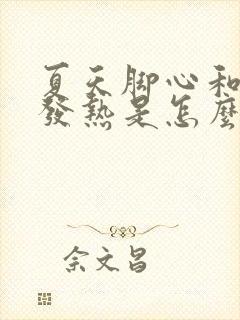 夏天脚心和
發熱是怎麼
佘文昌